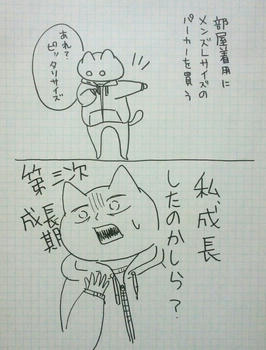 部屋着用に
メンズLサイズの
パーカーを買う
あれ?
ピッ
タリサイズ
私、成長
したのかしら?
第三次
成長期